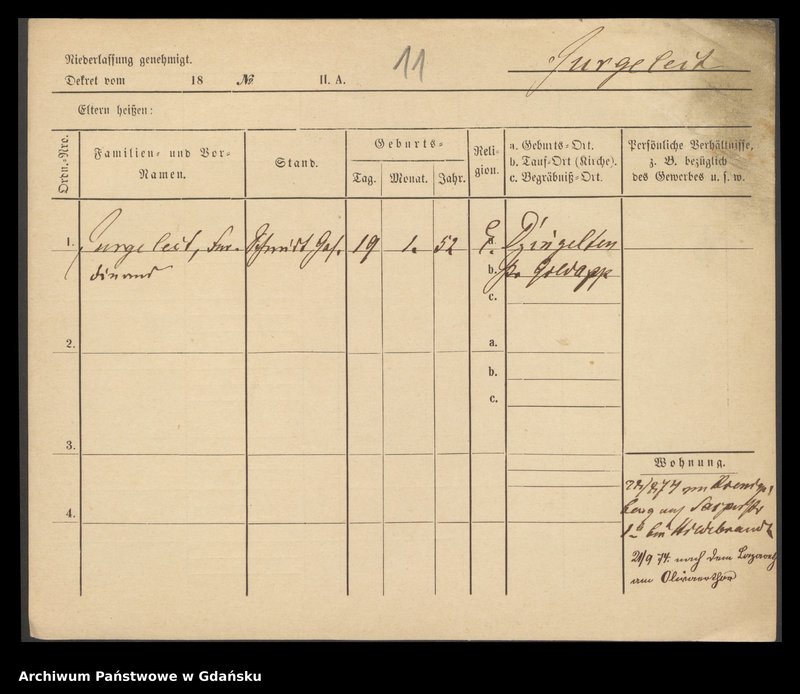 Niederlassung genehmigt.
Dekret vom 18 № II. A.
11
Jurgeleit
Eltern heißen:
Ordn.-Nro.
Familien- und Vor-
Namen.
Stand.
Geburts-
Tag. Monat. Jahr.
Reli-
gion.
a. Geburts-Ort.
b. Tauf-Ort (Kirche).
c. Begräbniß-Ort.
Persönliche Verhältnisse,
z. B. bezüglich
des Gewerbes u. s. w.
1. Jurgeleit, Fer- Schmidt Ges. 19 1. 52 E a. Dzingelten
dinand b. Kr. Goldapp
c.
2. a.
b.
c.
3.
4.
Wohnung.
berg auf
bei Hildebrandt
21/9 74. nach dem Lazareth
am Olivaerthor
Archiwum Państwowe w Gdańsku